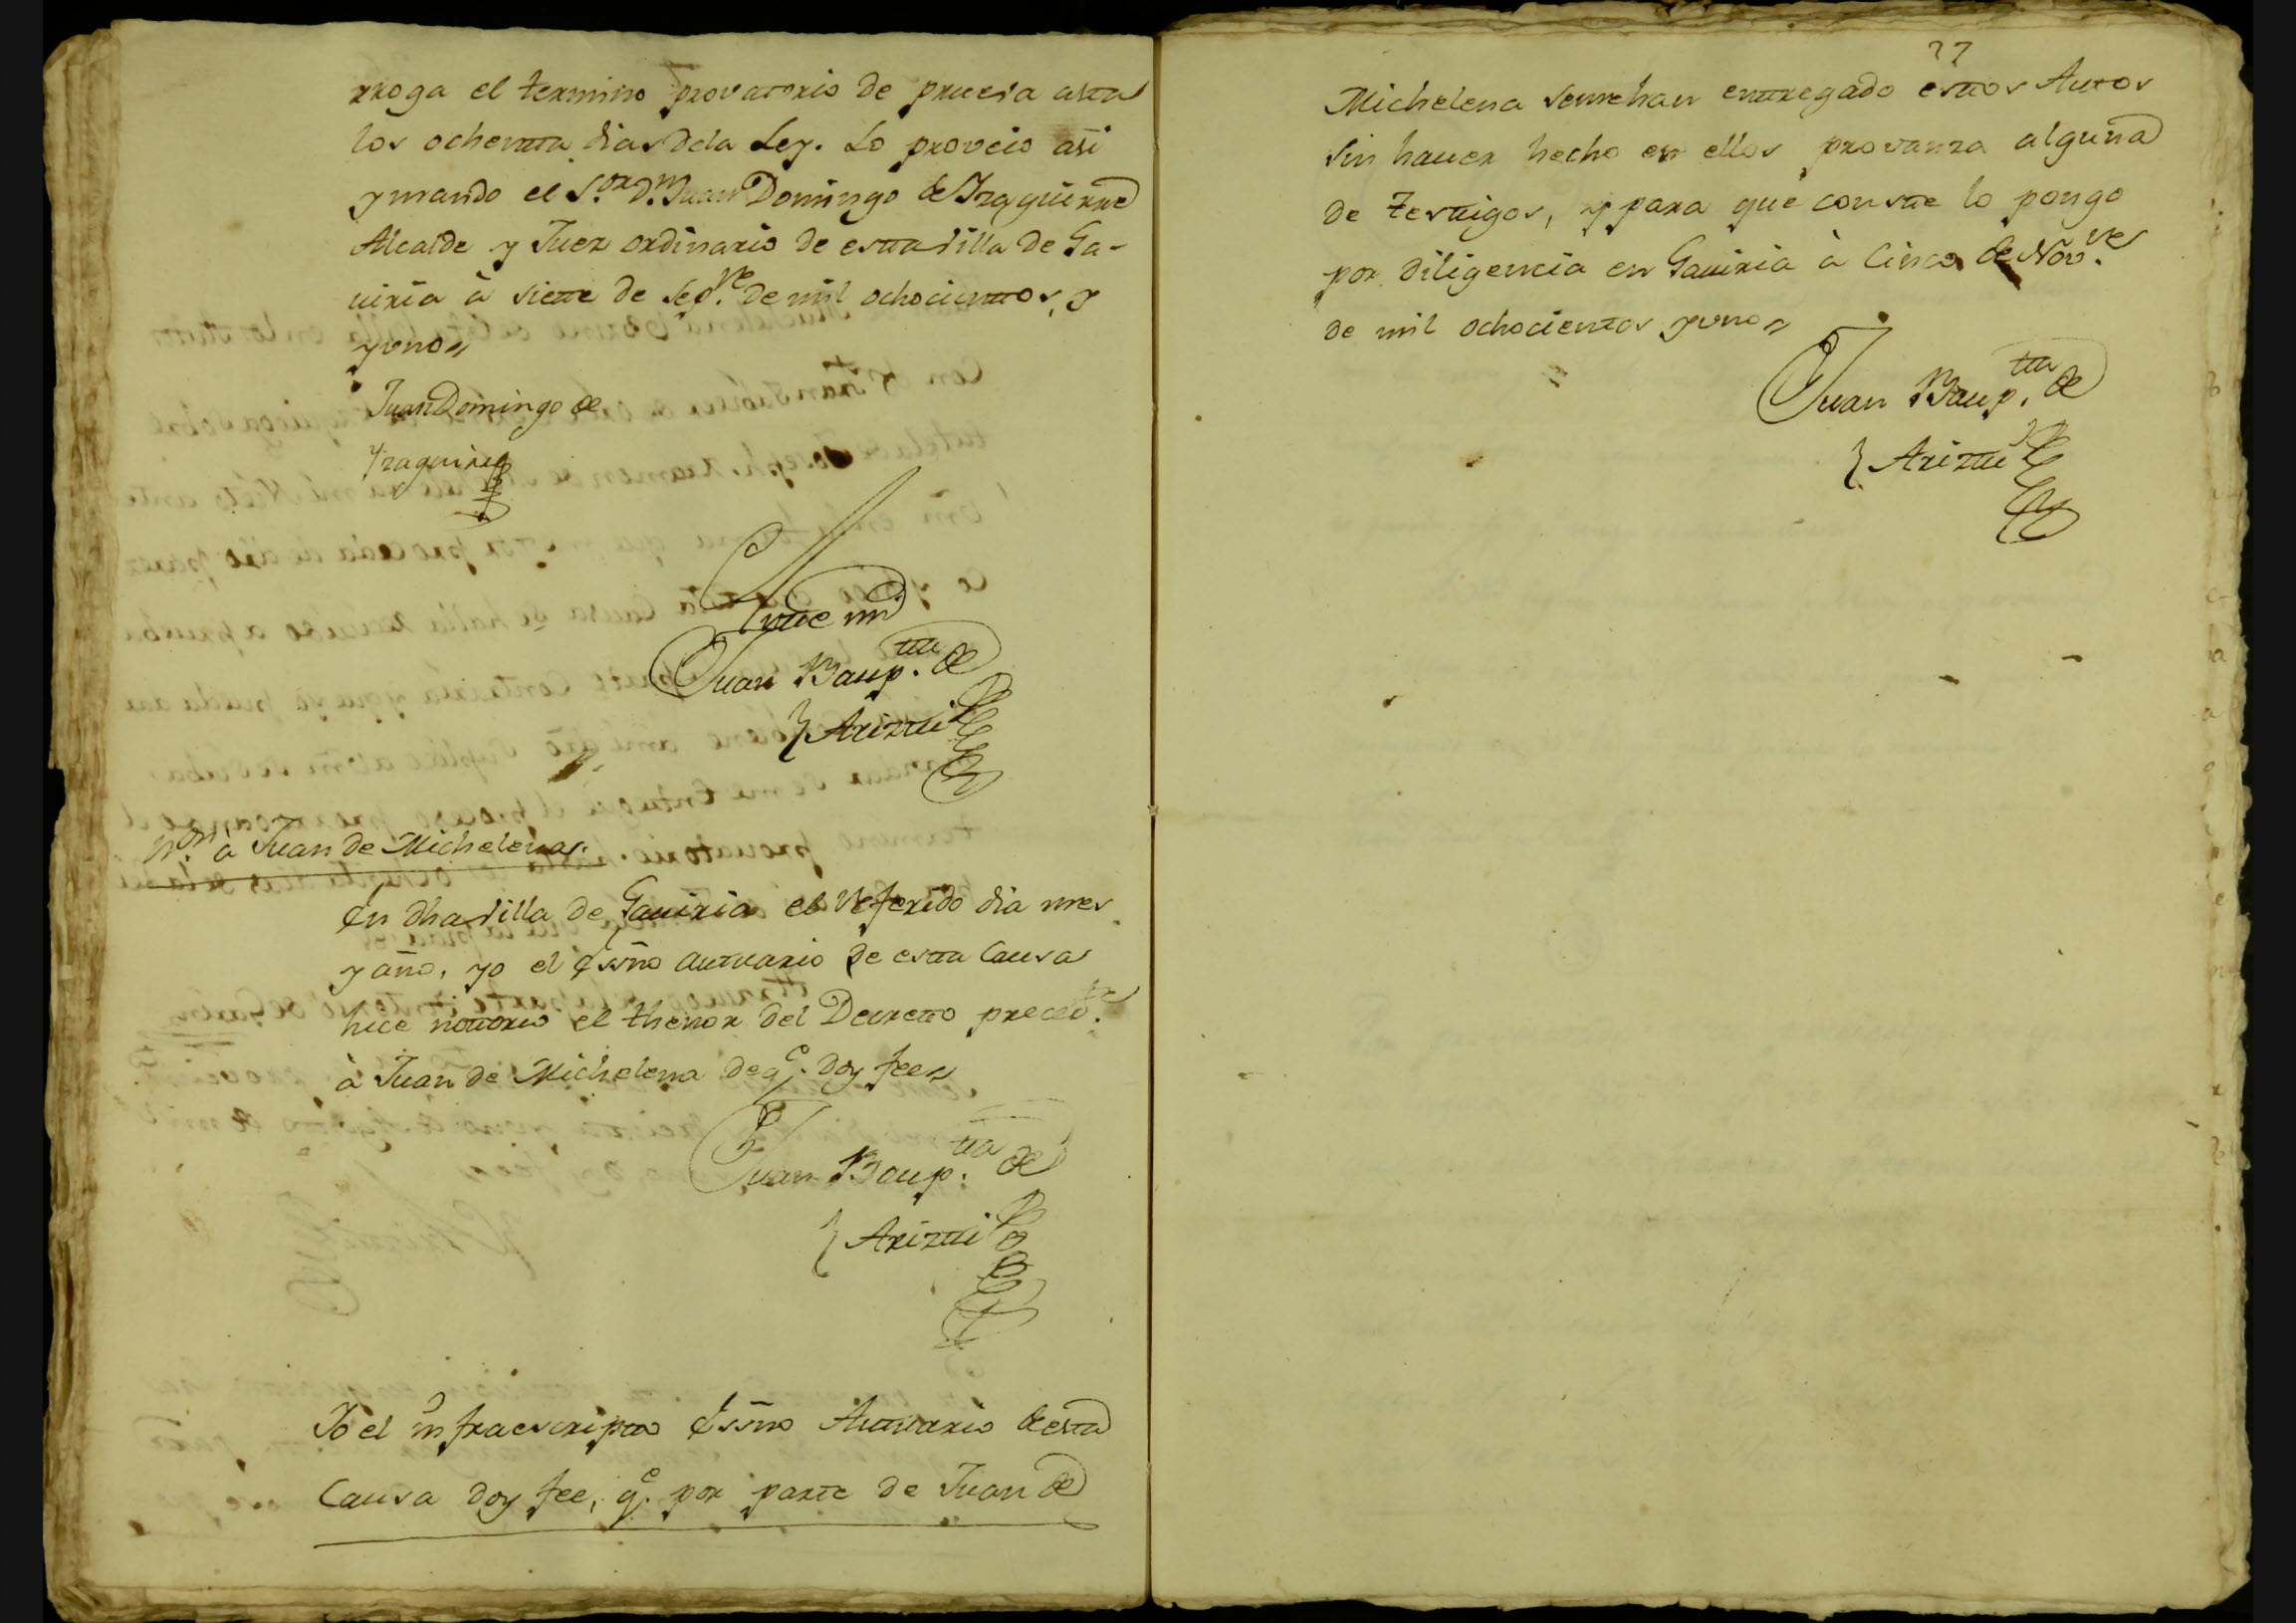 rroga el termino provatorio de prueva asta
los ochentta dias dela Ley. Lo proveio asi
y mando el S.or D.n Juan Domingo de Yzaguirre
Alcalde y Juez ordinario de estta villa de Ga-
viria à siette de Sep.re de mil ochocienttos, y
y uno,,
Juan Domingo de
Yzaguirre
Antte mi
Juan Baup.tta de
Arizti
N.on à Juan de Michelena.
En dha villa de Gaviria el referido dia mes
y año, yo el Essno acttuario de estta Causa
hice nottorio el thenor del Decretto preced.te
à Juan de Michelena de q.e doy fee,,
Juan Baup.tta de
Arizti
Yo el infraescriptto Essno Acttuario de estta
Causa doy fee, q.e por parte de Juan de
37
Michelena semehan enttregado esttos Auttos
sin haver hecho en ellos provanza alguna
de Testtigos, y para que constte lo pongo
por diligencia en Gaviria à Cinco de Nov.re
de mil ochocienttos y uno,,
Juan Baup.tta de
Arizti